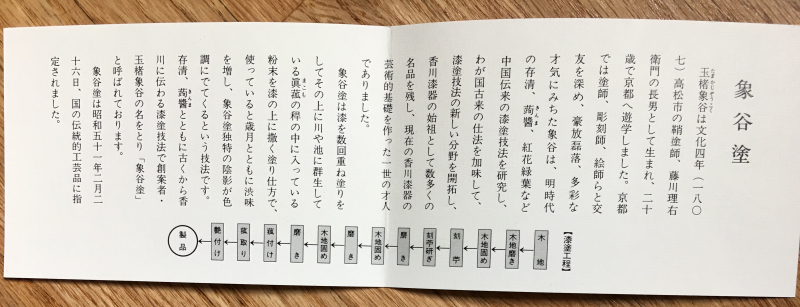 象谷塗
たまかじぞうこく
玉楮象谷は文化四年(一八〇
七)高松市の鞘塗師、藤川理右
衛門の長男として生まれ、二十
歳で京都へ遊学しました。京都
では塗師、彫刻師、絵師らと交
友を深め、豪放磊落、多彩な
才気にみちた象谷は、明時代
きんま
の存清、蒟醬、紅花緑葉など
中国伝来の漆塗技法を研究し、
わが国古来の仕法を加味して、
漆塗技法の新しい分野を開拓し、
香川漆器の始祖として数多くの
名品を残し、現在の香川漆器の
芸術的基礎を作った一世の才人
でありました。
象谷塗は漆を数回重ね塗りを
してその上に川や池に群生して
まこも
いる眞菰の稈の中に入っている
粉末を漆の上に撒く塗り仕方で、
使っていると歳月とともに渋味
を増し、象谷塗独特の陰影が色
調にでてくるという技法です。
きんま
存清、蒟醬とともに古くから香
川に伝わる漆塗技法で創案者・
玉楮象谷の名をとり「象谷塗」
と呼ばれております。
象谷塗は昭和五十一年二月二
十六日、国の伝統的工芸品に指
定されました。
【漆塗工程】
木地
木地磨き
木地固め
刻苧
刻苧研ぎ
磨き
木地固め
磨き
木地固め
磨き
菰付け
菰取り
艶付け
製品